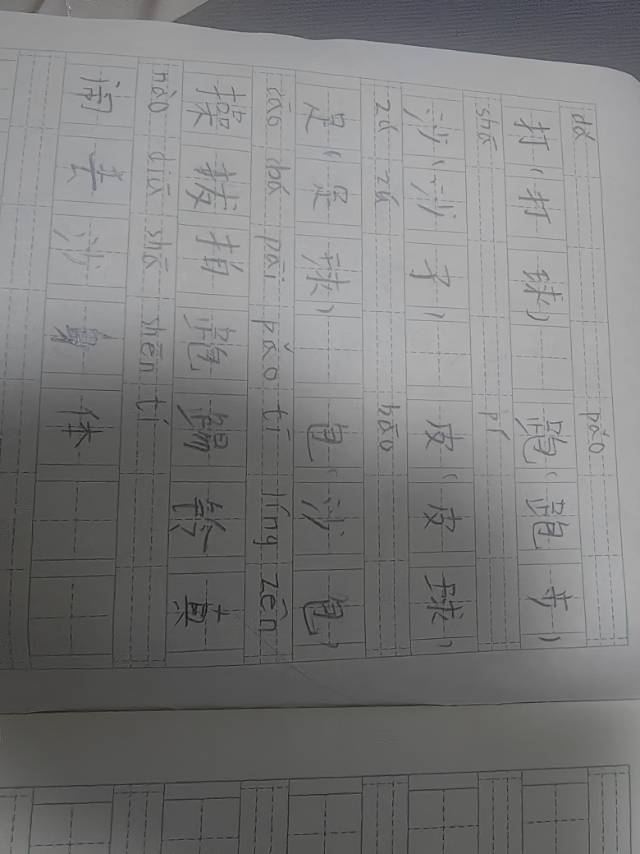 dǎ pǎo
打(打球) 跑(跑步)
shā pí
沙(沙子) 皮(皮球)
zú zú bāo
足(足球) 包(沙包)
cāo bá pāi pǎo tī líng zēn
操拔拍跑踢铃真
nào diū shā shēn tǐ
闹丢沙身体